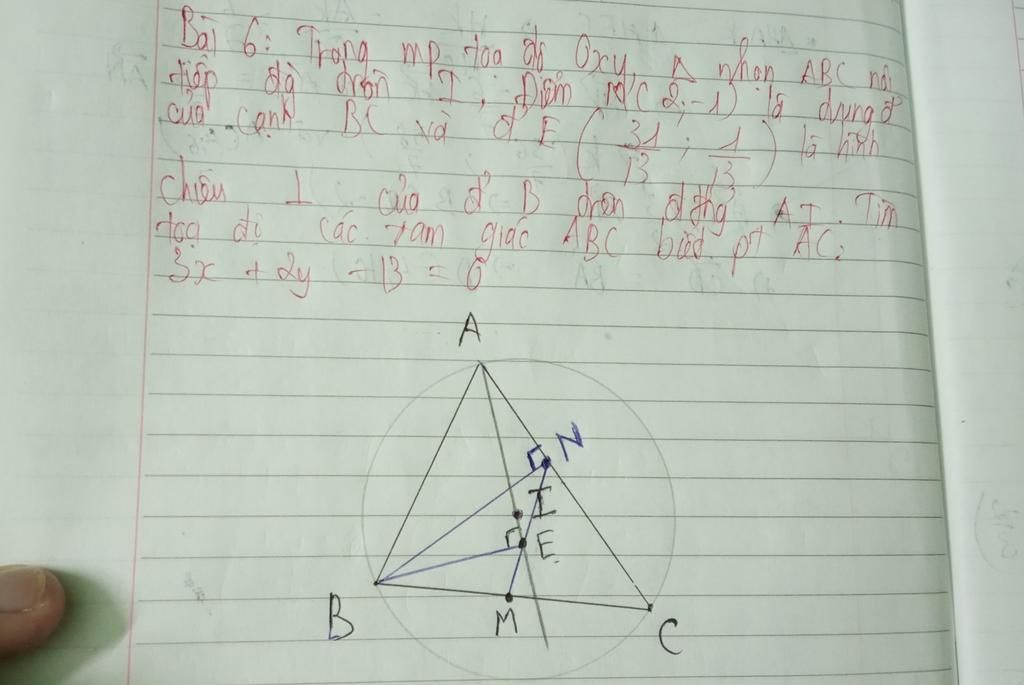 Bài 6: Trong mp tọa độ Oxy, Δ nhọn ABC nội
tiếp đg tròn I, Điểm M(2;-1) là trung đ
của cạnh BC và đ E (31/13; 1/13) là hình
chiếu ⊥ của đ B trên đ thg AI. Tìm
tọa độ các tam giác ABC biết pt AC:
3x + 2y - 13 = 0
A
N
I
E
B
M
C